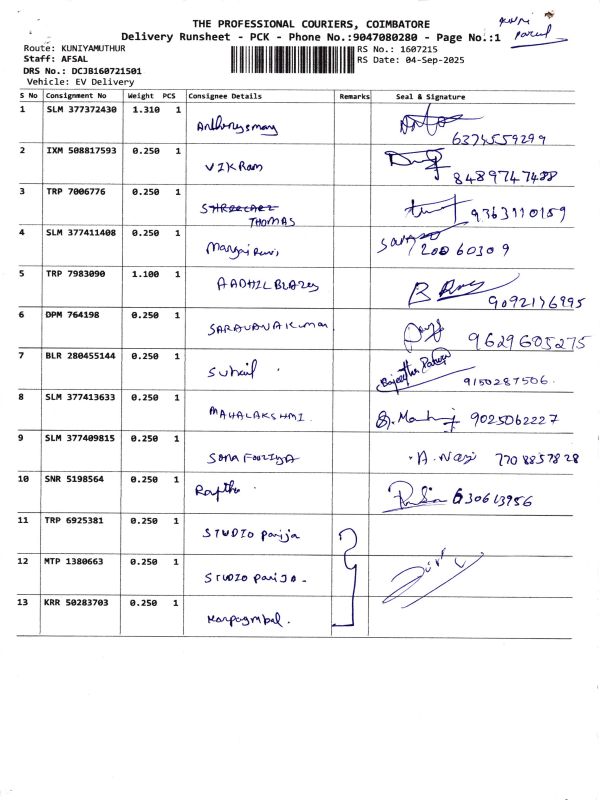 THE PROFESSIONAL COURIERS, COIMBATORE
Delivery Runsheet - PCK - Phone No.:9047080280 - Page No.:1
Parcel
Route: KUNIYAMUTHUR
RS No.: 1607215
Staff: AFSAL
RS Date: 04-Sep-2025
DRS No.: DCJB160721501
Vehicle: EV Delivery
S No Consignment No Weight PCS Consignee Details Remarks Seal & Signature
1 SLM 377372430 1.310 1 Anthonysmary 6374559299
2 IXM 508817593 0.250 1 VIKRam 8489747488
3 TRP 7006776 0.250 1 THOMAS 9363110159
4 SLM 377411408 0.250 1 20060309
5 TRP 7983090 1.100 1 AADHIL BLAZEY 9092176995
6 DPM 764198 0.250 1 SARAVANAKumar 9629605275
7 BLR 280455144 0.250 1 Suhail 9150287506
8 SLM 377413633 0.250 1 MAHALAKSHMI 9025062227
9 SLM 377409815 0.250 1 SONA FOUZIYA 7708857828
10 SNR 5198564 0.250 1 630613956
11 TRP 6925381 0.250 1 STUDIO Parija
12 MTP 1380663 0.250 1 STUDIO Parija
13 KRR 50283703 0.250 1 Karpagmbal.